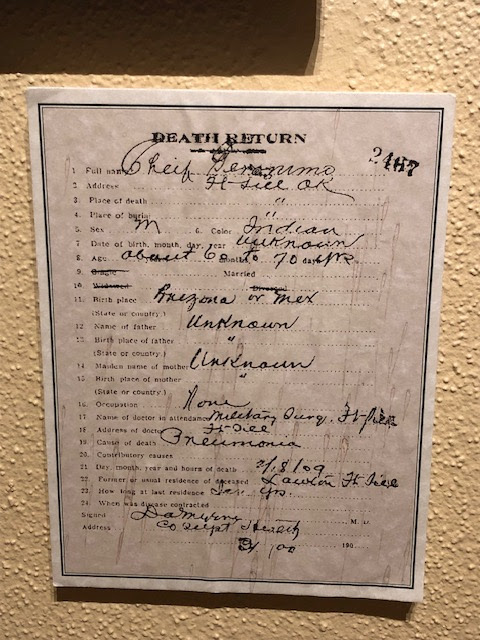 DEATH RETURN
2487
1 Full name Cheif Geronimo
2. Address Ft. Sill OK
3. Place of death "
4. Place of burial
5. Sex M 6. Color Indian
7 Date of birth, month, day, year Unknown
8. Age about 60 to 70 yrs
9. Single Married
10. Widowed Divorced
11. Birth place Arizona or Mex
(State or country.)
12 Name of father Unknown
13. Birth place of father "
(State or country.)
14 Maiden name of mother Unknown
15 Birth place of mother "
(State or country.)
16 Occupation None
17. Name of doctor in attendance Military Surg. Ft-Sill
18. Address of doctor Ft-Sill
19. Cause of death Pneumonia
20. Contributory causes
21. Day, month, year and hours of death
22. Former or usual residence of deceased Lawton Ft Sill
23. How long at last residence yrs.
24. When was disease contracted
Signed M. D.
Address Co Supt Health
190